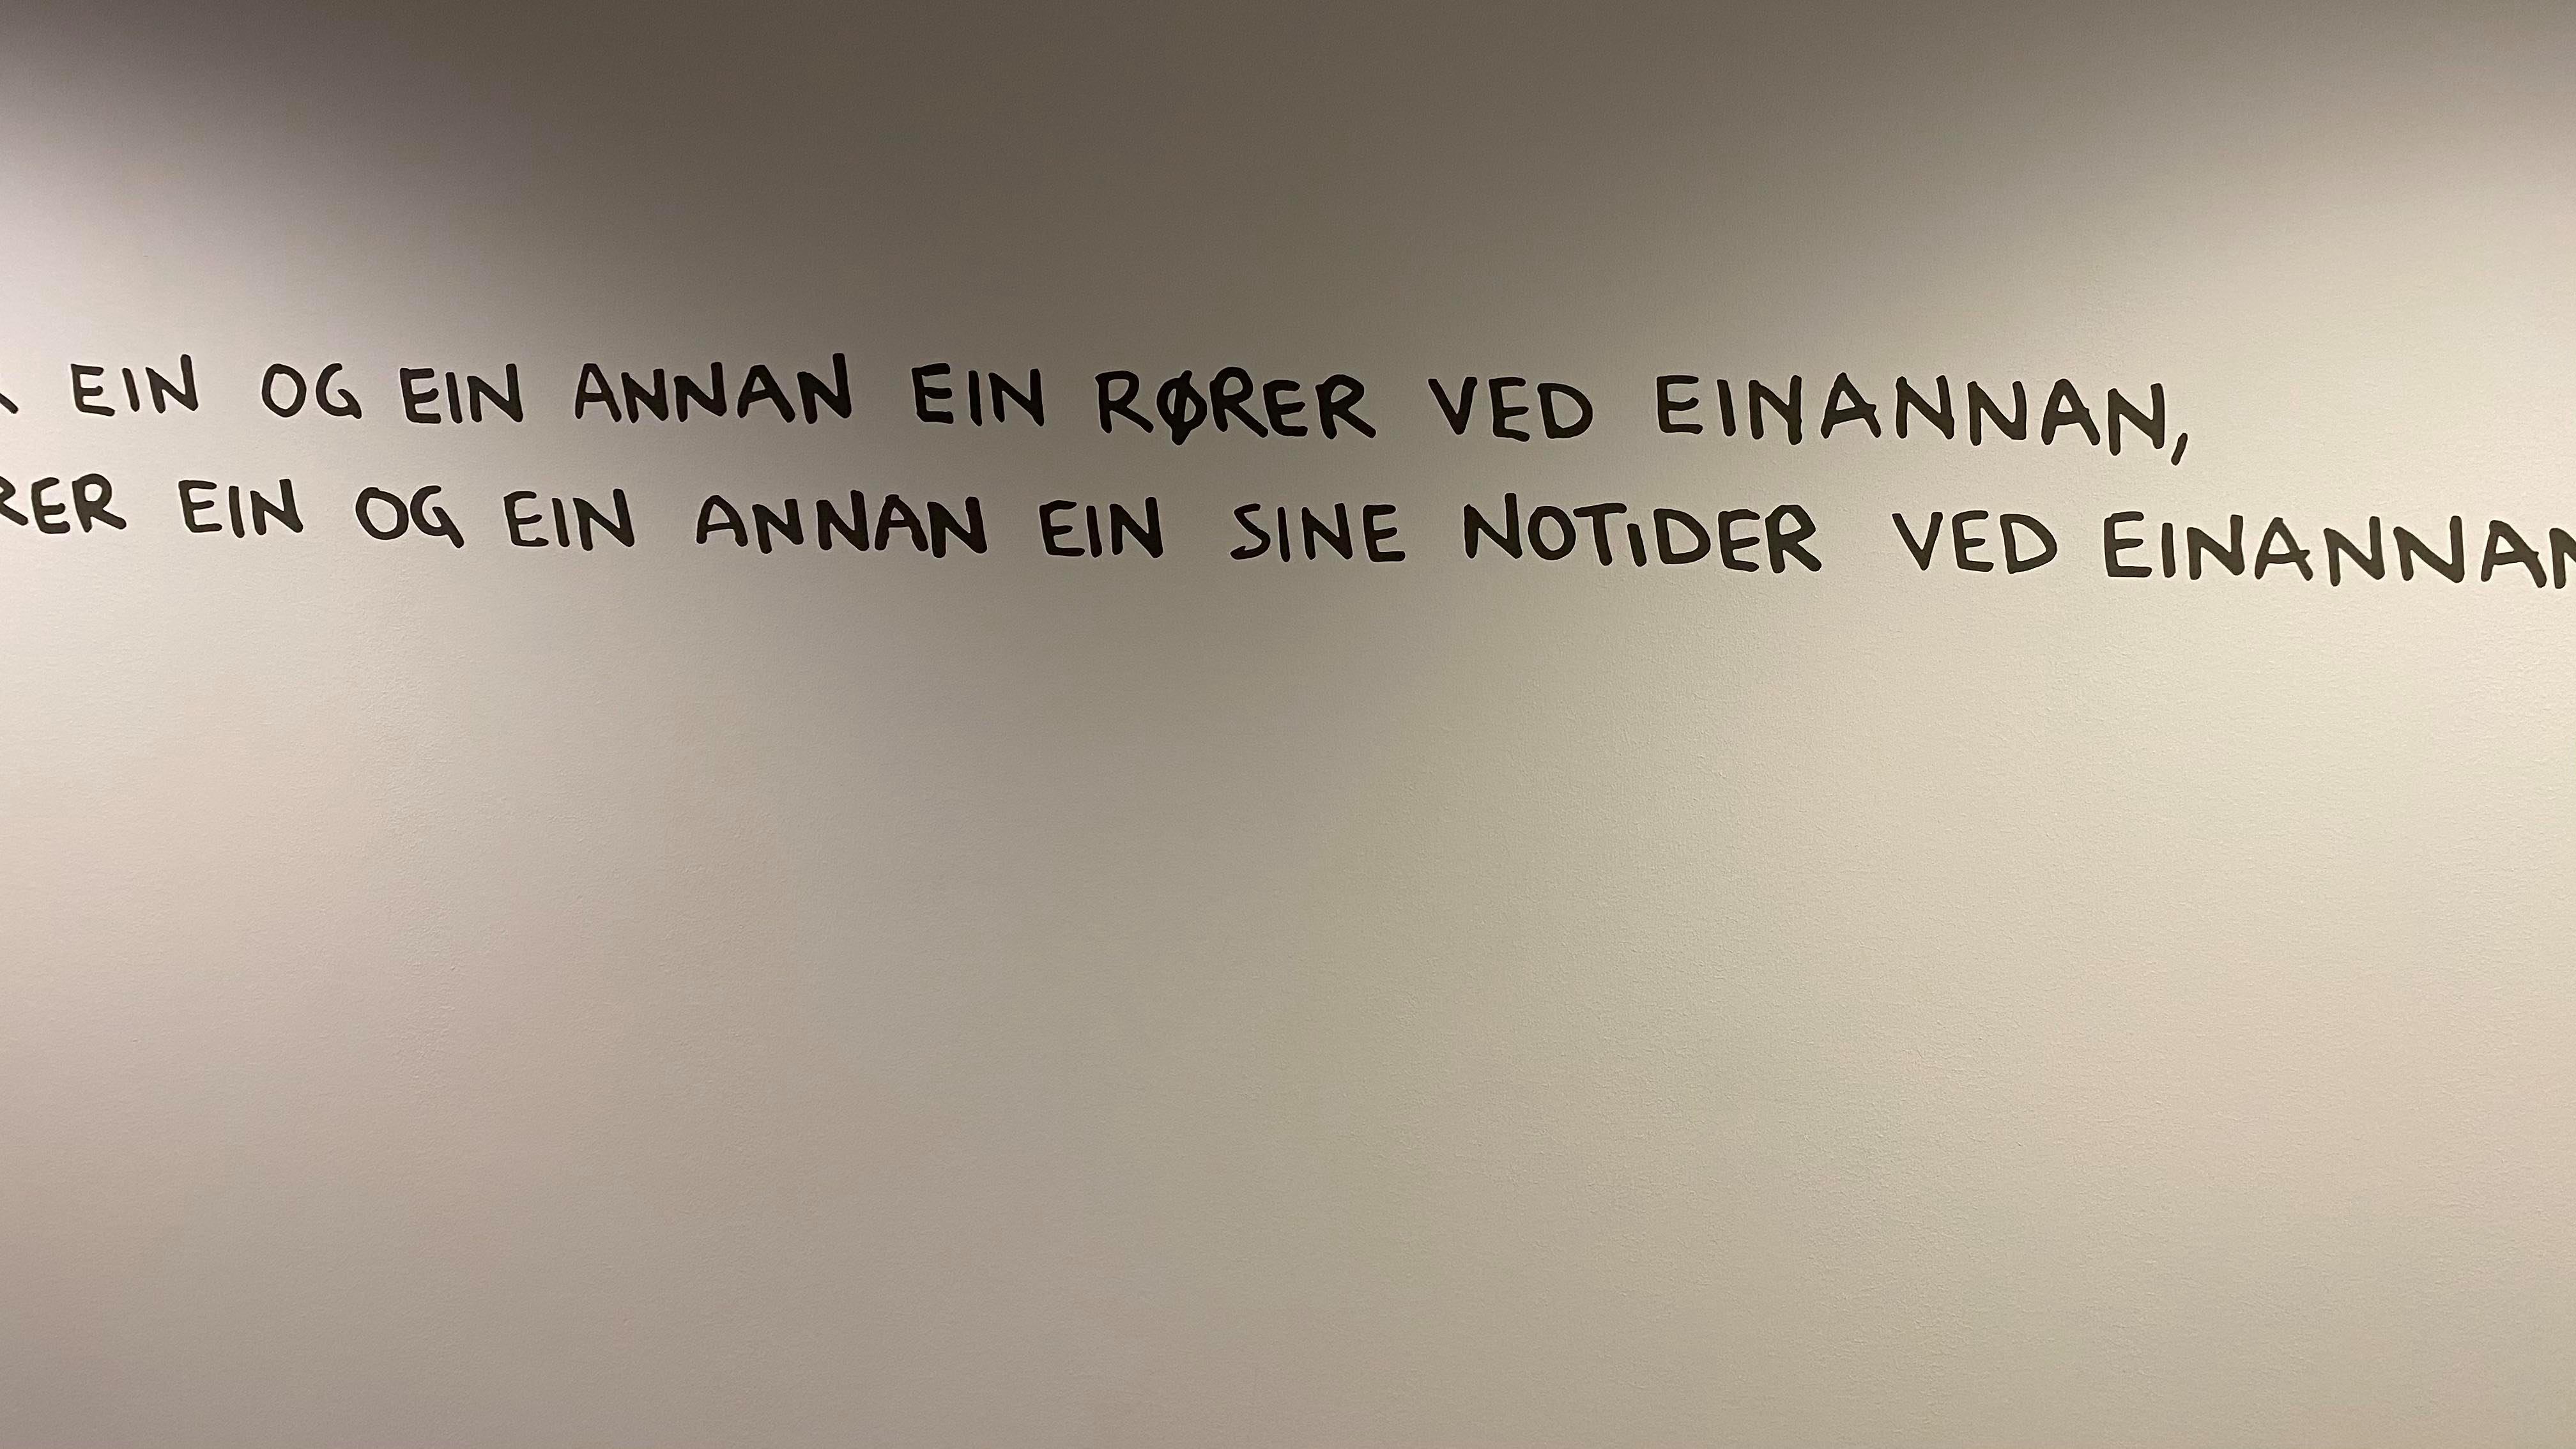 EIN OG EIN ANNAN EIN RØRER VED EINANNAN,
EIN OG EIN ANNAN EIN SINE NOTIDER VED EINANNAN